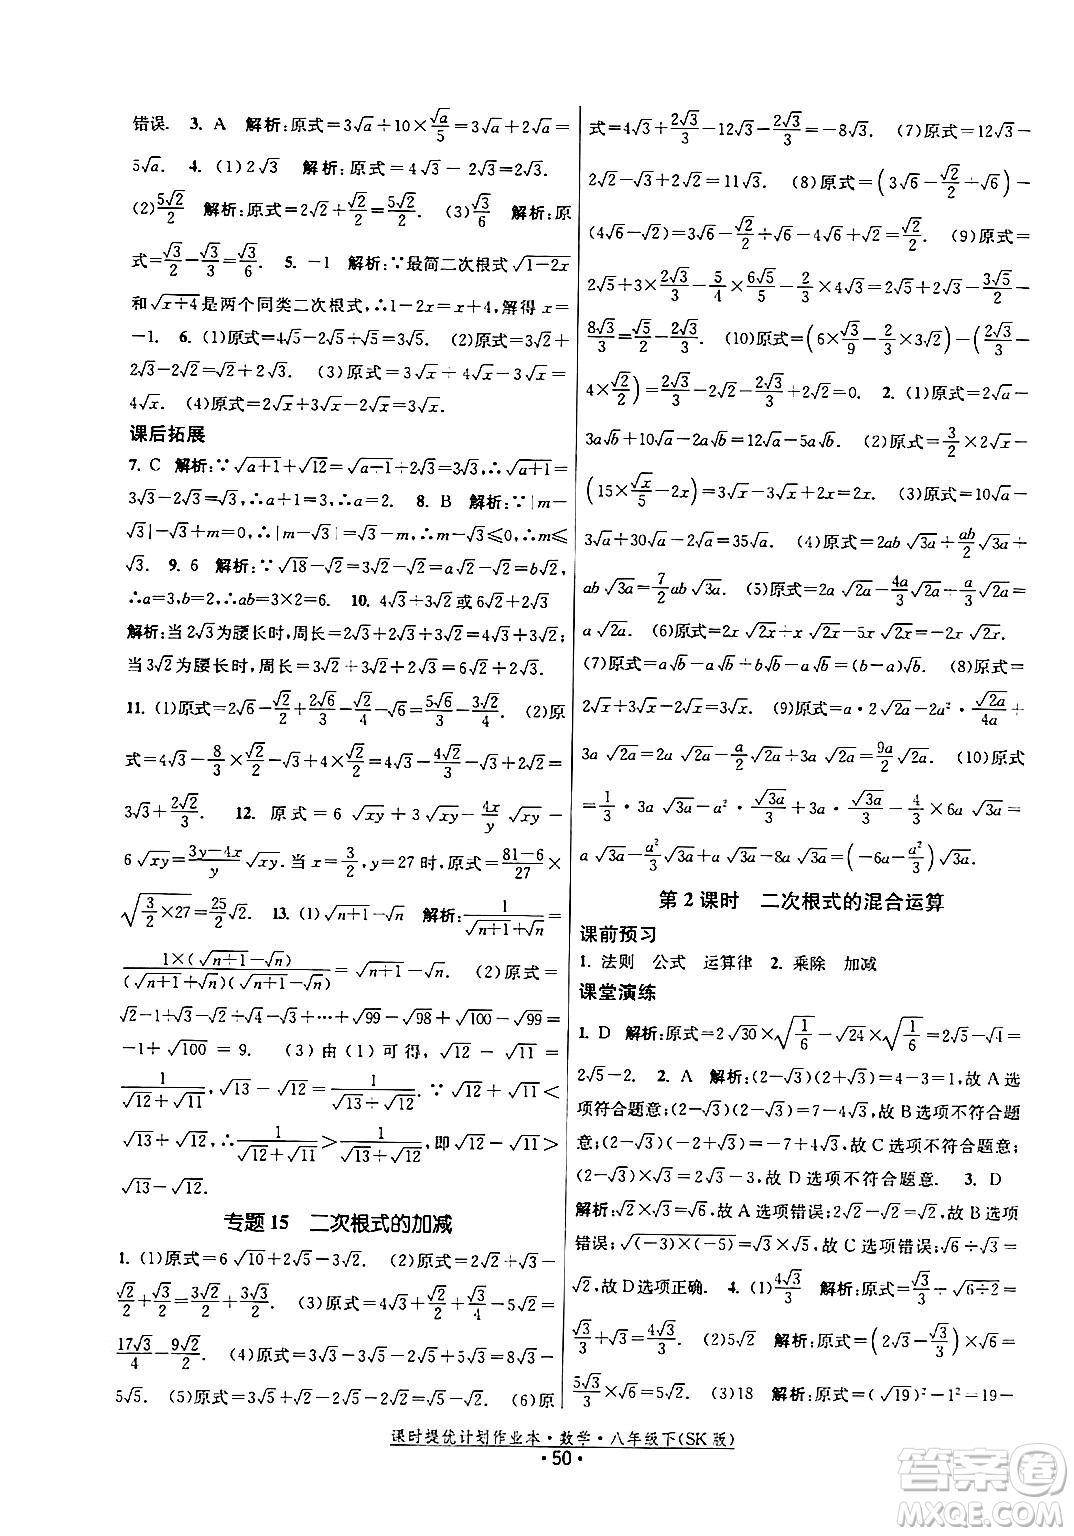 错误. 3. A 解析:原式=3√a÷10×√a/5=3√a+2√a=
5√a. 4. (1)2√3 解析:原式=4√3-2√3=2√3.
(2)5√2/2 解析:原式=2√2+√2/2=5√2/2. (3)√3/6 解析:原
式=√3/2-√3/3=√3/6. 5. -1 解析:∵最简二次根式√(1-2x)
和√(x+4)是两个同类二次根式,∴1-2x=x+4,解得x=
-1. 6. (1)原式=4√5-2√5+√5=3√5. (2)原式=2√2+
2√3-√2=√2+2√3. (3)原式=3√x+4√x-3√x=
4√x. (4)原式=2√x+3√x-2√x=3√x.
课后拓展
7. C 解析:∵√(a+1)+√12=√(a+1)+2√3=3√3,∴√(a+1)=
3√3-2√3=√3,∴a+1=3,∴a=2. 8. B 解析:∵|m-
√3|-√3+m=0,∴|m-√3|=√3-m,∴m-√3≤0,∴m≤
√3. 9. 6 解析:∵√18-√2=3√2-√2=2√2=a√2-√2=b√2,
∴a=3,b=2,∴ab=3×2=6. 10. 4√3+√2或6√2+2√3
解析:当2√3为腰长时,周长=2√3+2√3+3√2=4√3+3√2;
当3√2为腰长时,周长=3√2+3√2+2√3=6√2+2√3.
11. (1)原式=2√6-√2/2+2√6/3-√2/4-√6=5√6/3-3√2/4. (2)原
式=4√3-8/3×√2/2+4×√3/2-2√2=4√3-4√2/3+2√3-2√2=
6√3+2√2/3. 12. 原式=6√xy+3√xy-4x/y√xy-
6√xy=(3y-4x)/y√xy.当x=3/2,y=27时,原式=(81-6)/27×
√(3/2×27)=25/2√2. 13. (1)√(n+1)-√n 解析:1/(√(n+1)+√n)=
1×(√(n+1)-√n)/((√(n+1)+√n)(√(n+1)-√n))=√(n+1)-√n. (2)原式=
√2-1+√3-√2+…+√99-√98+√100-√99=
-1+√100=9. (3)由(1)可得,√12-√11=
1/(√12+√11),√13-√12=1/(√13+√12). ∵√12+√11<
√13+√12,∴1/(√12+√11)>1/(√13+√12),即√12-√11>
√13-√12.
专题15 二次根式的加减
1. (1)原式=6√10+2√5-3√2. (2)原式=2√2-√3-
√2/2+√3/2=3√2/2-√3/2. (3)原式=4√3-√2/2+√3/4-5√2=
17√3/4-9√2/2. (4)原式=3√3-2√5+5√3=8√3-
5√5. (5)原式=3√5+2√5-√5=4√5. (6)原
式=4√3+2√3/3-12√3-2√3/3=-8√3. (7)原式=12√3-
2√2-√3+2√2=11√3. (8)原式=(3√6-√2/2+√6)-
(4√6-√2)=3√6-√2/2+√6-4√6+√2=√2/2. (9)原式=
2√5×2√3/3-5/4×6√5/5-4/3×3√2=2√5+2√3-3√5/2-
8√3/3=√5/2-2√3/3. (10)原式=(6×√3/9-2/3×3√2)-(2√3/3-
4×√2/2)=2√3/3-2√2-2√3/3+2√2=0. 2. (1)原式=2√a-
3a√b+10a√b-12√a=7a√b-10√a. (2)原式=3/2×2√x-
(15×√x/5-2x)=3√x-3√x+2x=2x. (3)原式=10√a-
3√a+5√2a=35√2a. (4)原式=2ab√3a+ab/2√3a+
ab√3a=7/2ab√3a. (5)原式=2a√a-4a/3√a-a/3√a+
a√2a. (6)原式=2x√2x+x√2x-2x√2x=x√2x.
(7)原式=a√b-a√b+b√b=(b-a)√b. (8)原式=
2√x+3√x-2√x=3√x. (9)原式=a·2√2a-2a²·√2a/4a+
3a√2a=2a√2a-a/2√2a+3a√2a=9a/2√2a. (10)原式
=1/3·3a√3a-a²·√3a/3-6a·√3a/a-4/3×a√3a=
a√3a-a²/3√3a-6√3a-4/3a√3a=(-6a-a²/3)√3a.
第2课时 二次根式的混合运算
课前预习
1. 法则 公式 运算律 2. 乘除 加减
课堂演练
1. D 解析:原式=2√30×√(1/6)-√24×√(1/6)=2√5-√4=
2√5-2. 2. A 解析:(2-√3)(2+√3)=4-3=1,故A选
项符合题意;(2-√3)(2-√3)=7-4√3,故B选项不符合题
意;(2-√3)(-2+√3)=-7+4√3,故C选项不符合题意;
(2-√3)×√3=2√3-3,故D选项不符合题意. 3. D
解析:√2×√3=√6,故A选项错误;2√2-√2=√2,故B选项
错误;√((-3)×(-5))=√15,故C选项错误;√6÷√3=
√2,故D选项正确. 4. (1)4√3/3 解析:原式=√3/3+√(6÷2)=
√3/3+√3=4√3/3. (2)5√2 解析:原式=(2√3-√3/3)×√6=
5√3/3×√6=5√2. (3)18 解析:原式=(√19)²-1²=19-
课时提优计划作业本·数学·八年级下(SK版)
·50·
答案圈
MXQE.COM